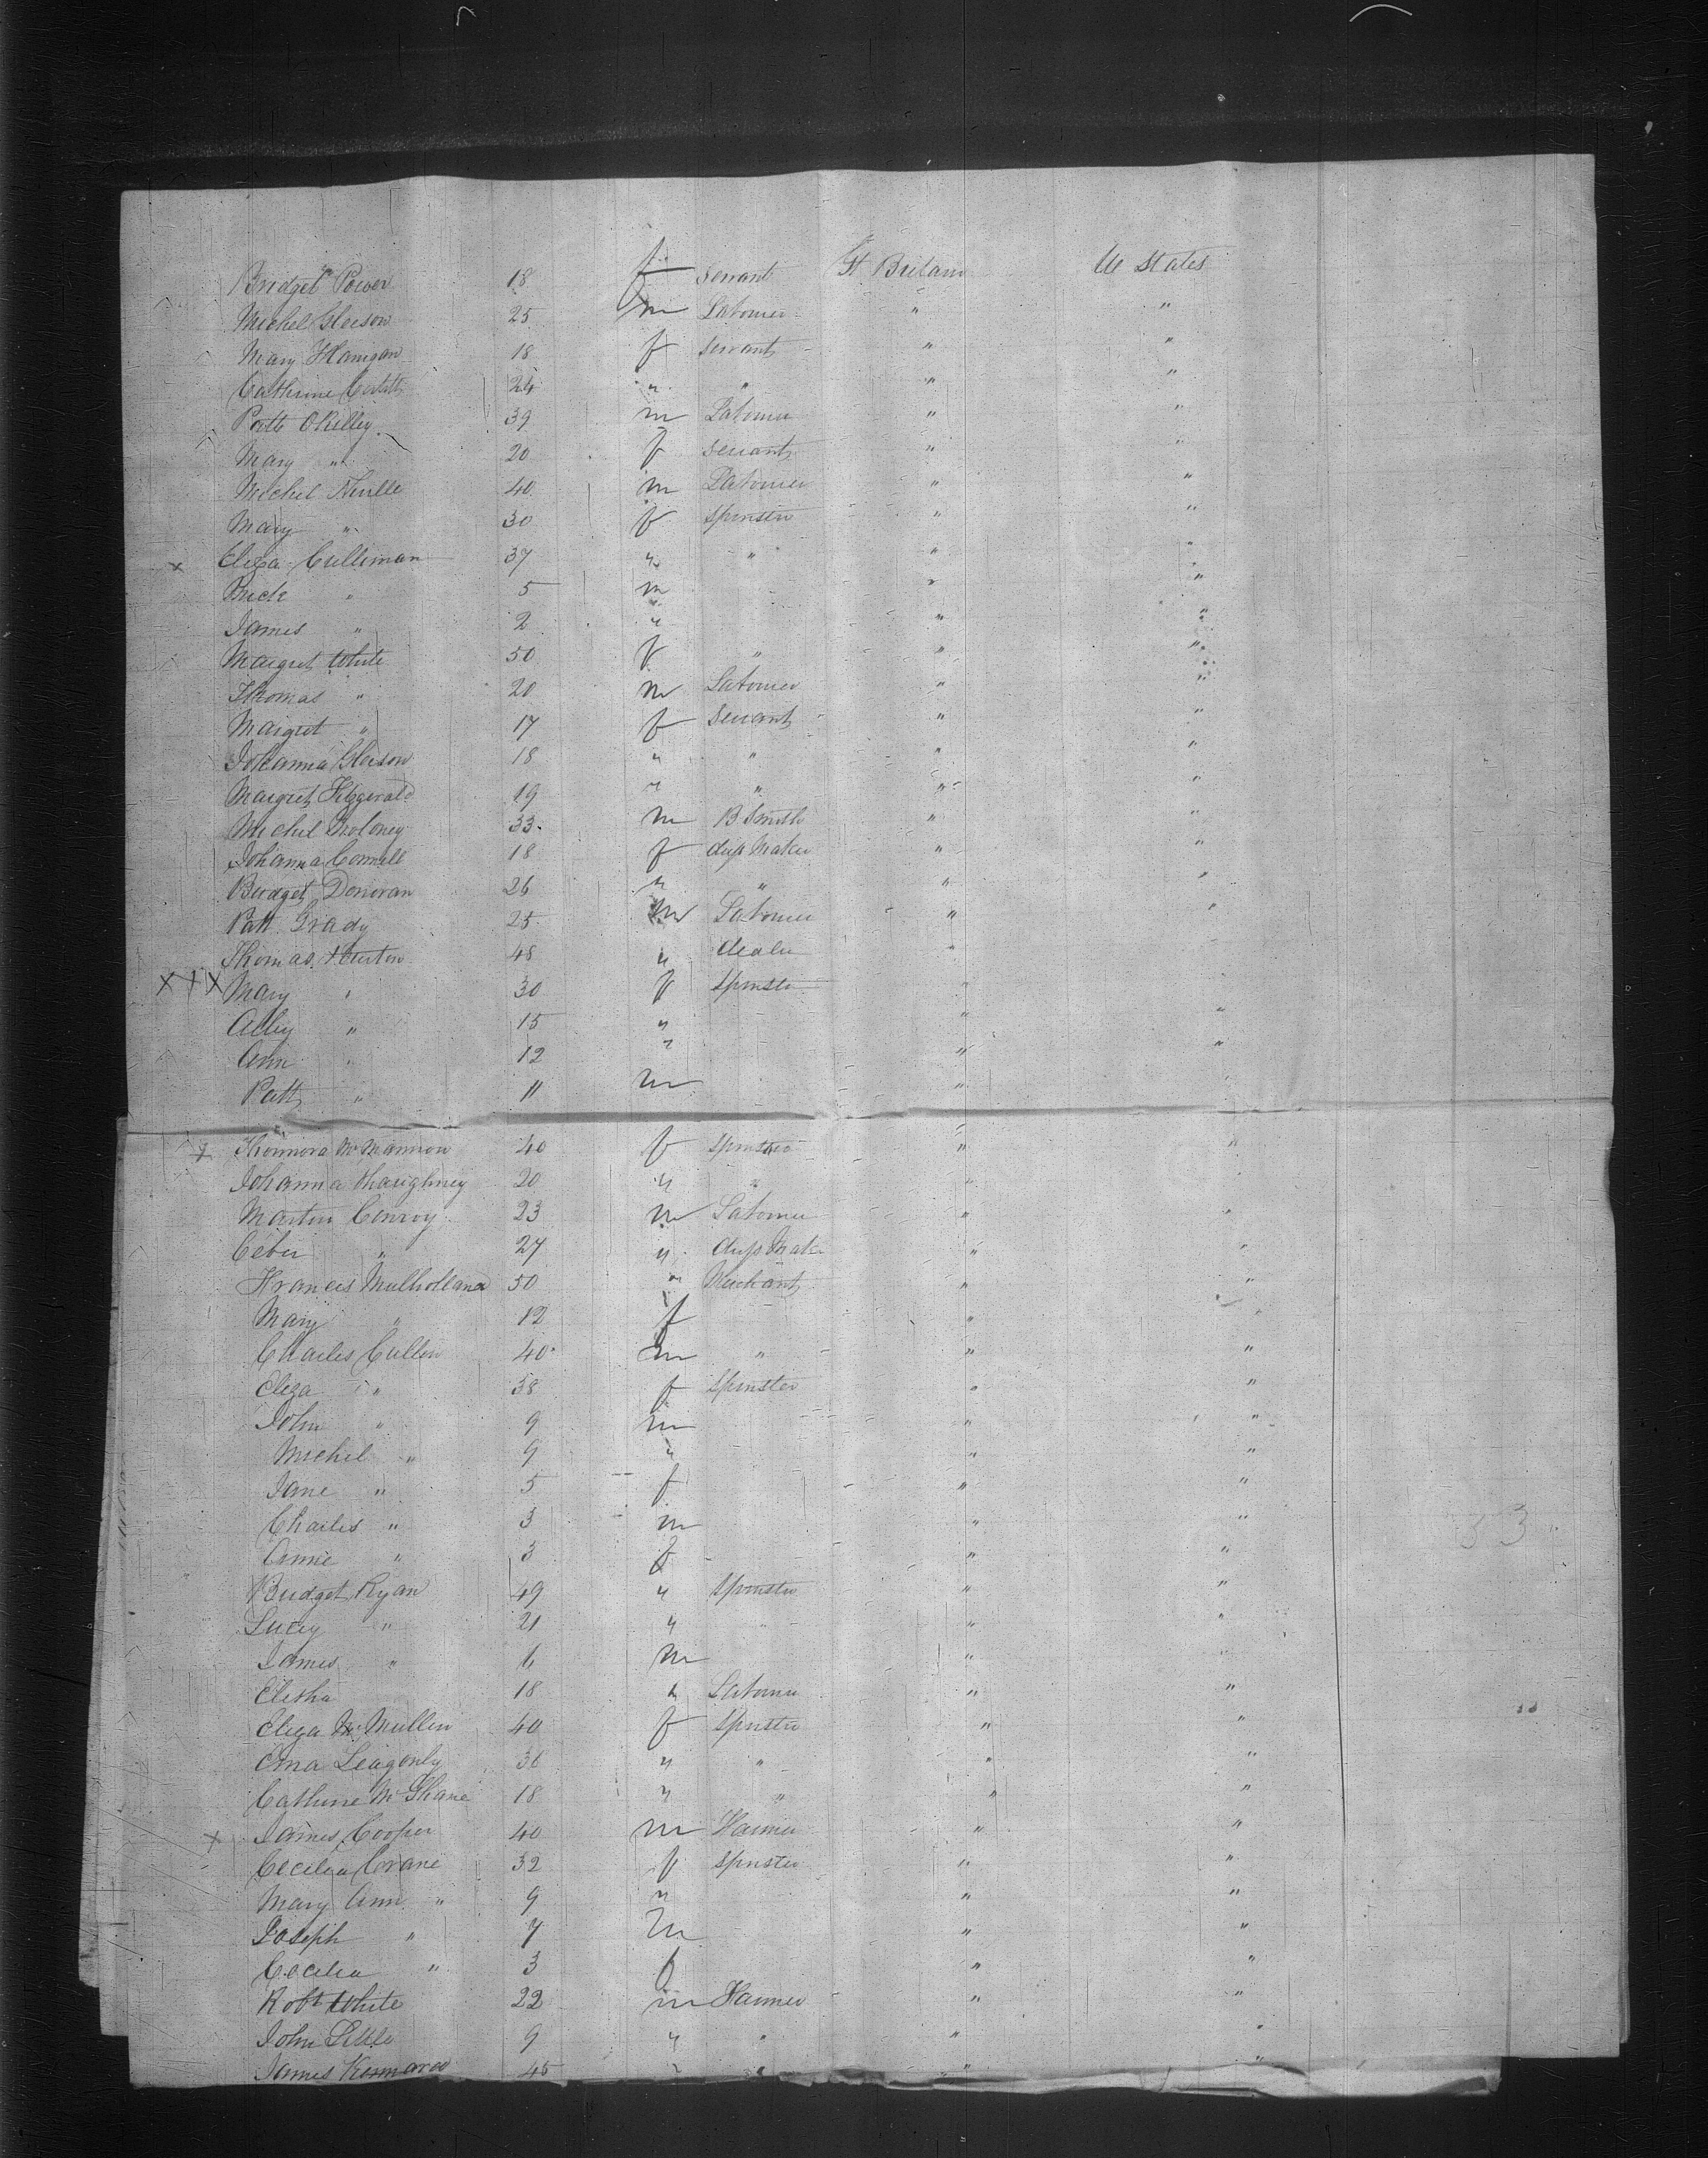 Bridget Power 18 f servant Gt Britain U States
Michel Gleeson 25 m Labourer " "
Mary Flanigan 18 f servant " "
Catherine Corbitt 24 " " " "
Patt OKelley 39 m Labourer " "
Mary " 20 f servant " "
Michel Neville 40 m Labourer " "
Mary " 30 f Spinster " "
x Eliza Culliman 37 " " " "
" 5 m " "
James " 2 " " "
Margret White 50 f " " "
Thomas " 20 m Labourer " "
Margret " 17 f Servant " "
Johanna Gleeson 18 " " " "
Margret Fitzgerald 19 " " " "
Michel Moloney 33 m B Smith " "
Johanna Connell 18 f dress Maker " "
Bridget Donovan 26 " " " "
Patt Grady 25 m Labourer " "
Thomas 48 " dealer " "
x x x Mary " 30 f Spinster " "
Alley " 15 " " "
Ann " 12 " " "
Patt " 11 m " "
x McMannon 40 f spinster " "
Johanna 20 " " " "
Martin Conroy 23 m Labourer " "
" 27 " dress Mak " "
Francis Mulholland 50 " Merchant " "
Mary " 12 f " "
Charles Cullen 40 m " " "
Eliza " 38 f Spinster " "
John " 9 m " "
Michel " 9 " " "
Jane " 5 f " "
Charles " 3 m " " 33
Annie " 3 f " "
Bridget Ryan 49 " Spinster " "
Lucey " 21 " " " "
James " 6 m " "
Elisha 18 " Labourer " "
Eliza McMullen 40 f Spinster " "
36 " " " "
Catherine McShane 18 " " " "
x James Cooper 40 m Farmer " "
Cecelia Crane 32 f Spinster " "
Mary Ann " 9 " " "
Joseph " 7 m " "
Cecelia " 3 f " "
Robt White 22 m Farmer " "
John Little 9 " " " "
James 45 " " " "